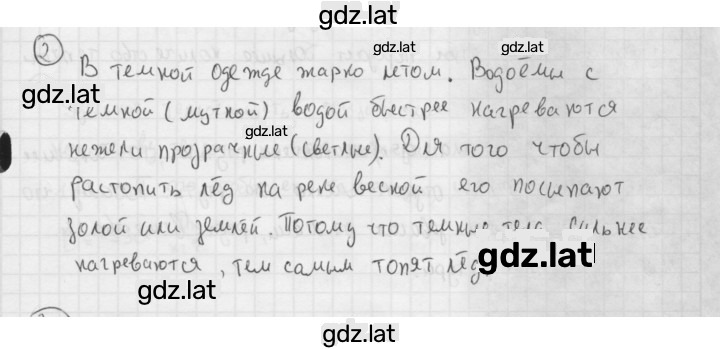 gdz.lat
2
gdz.lat
В темной одежде жарко летом. Водоёмы с
gdz.lat
темной (мутной) водой быстрее нагреваются
gdz.lat
нежели прозрачные (светлые). Для того чтобы
растопить лёд на реке весной его посыпают
золой или землёй. Потому что темные тела сильнее
gdz.lat
нагреваются, тем самым топят лёд
gdz.lat
gdz.lat